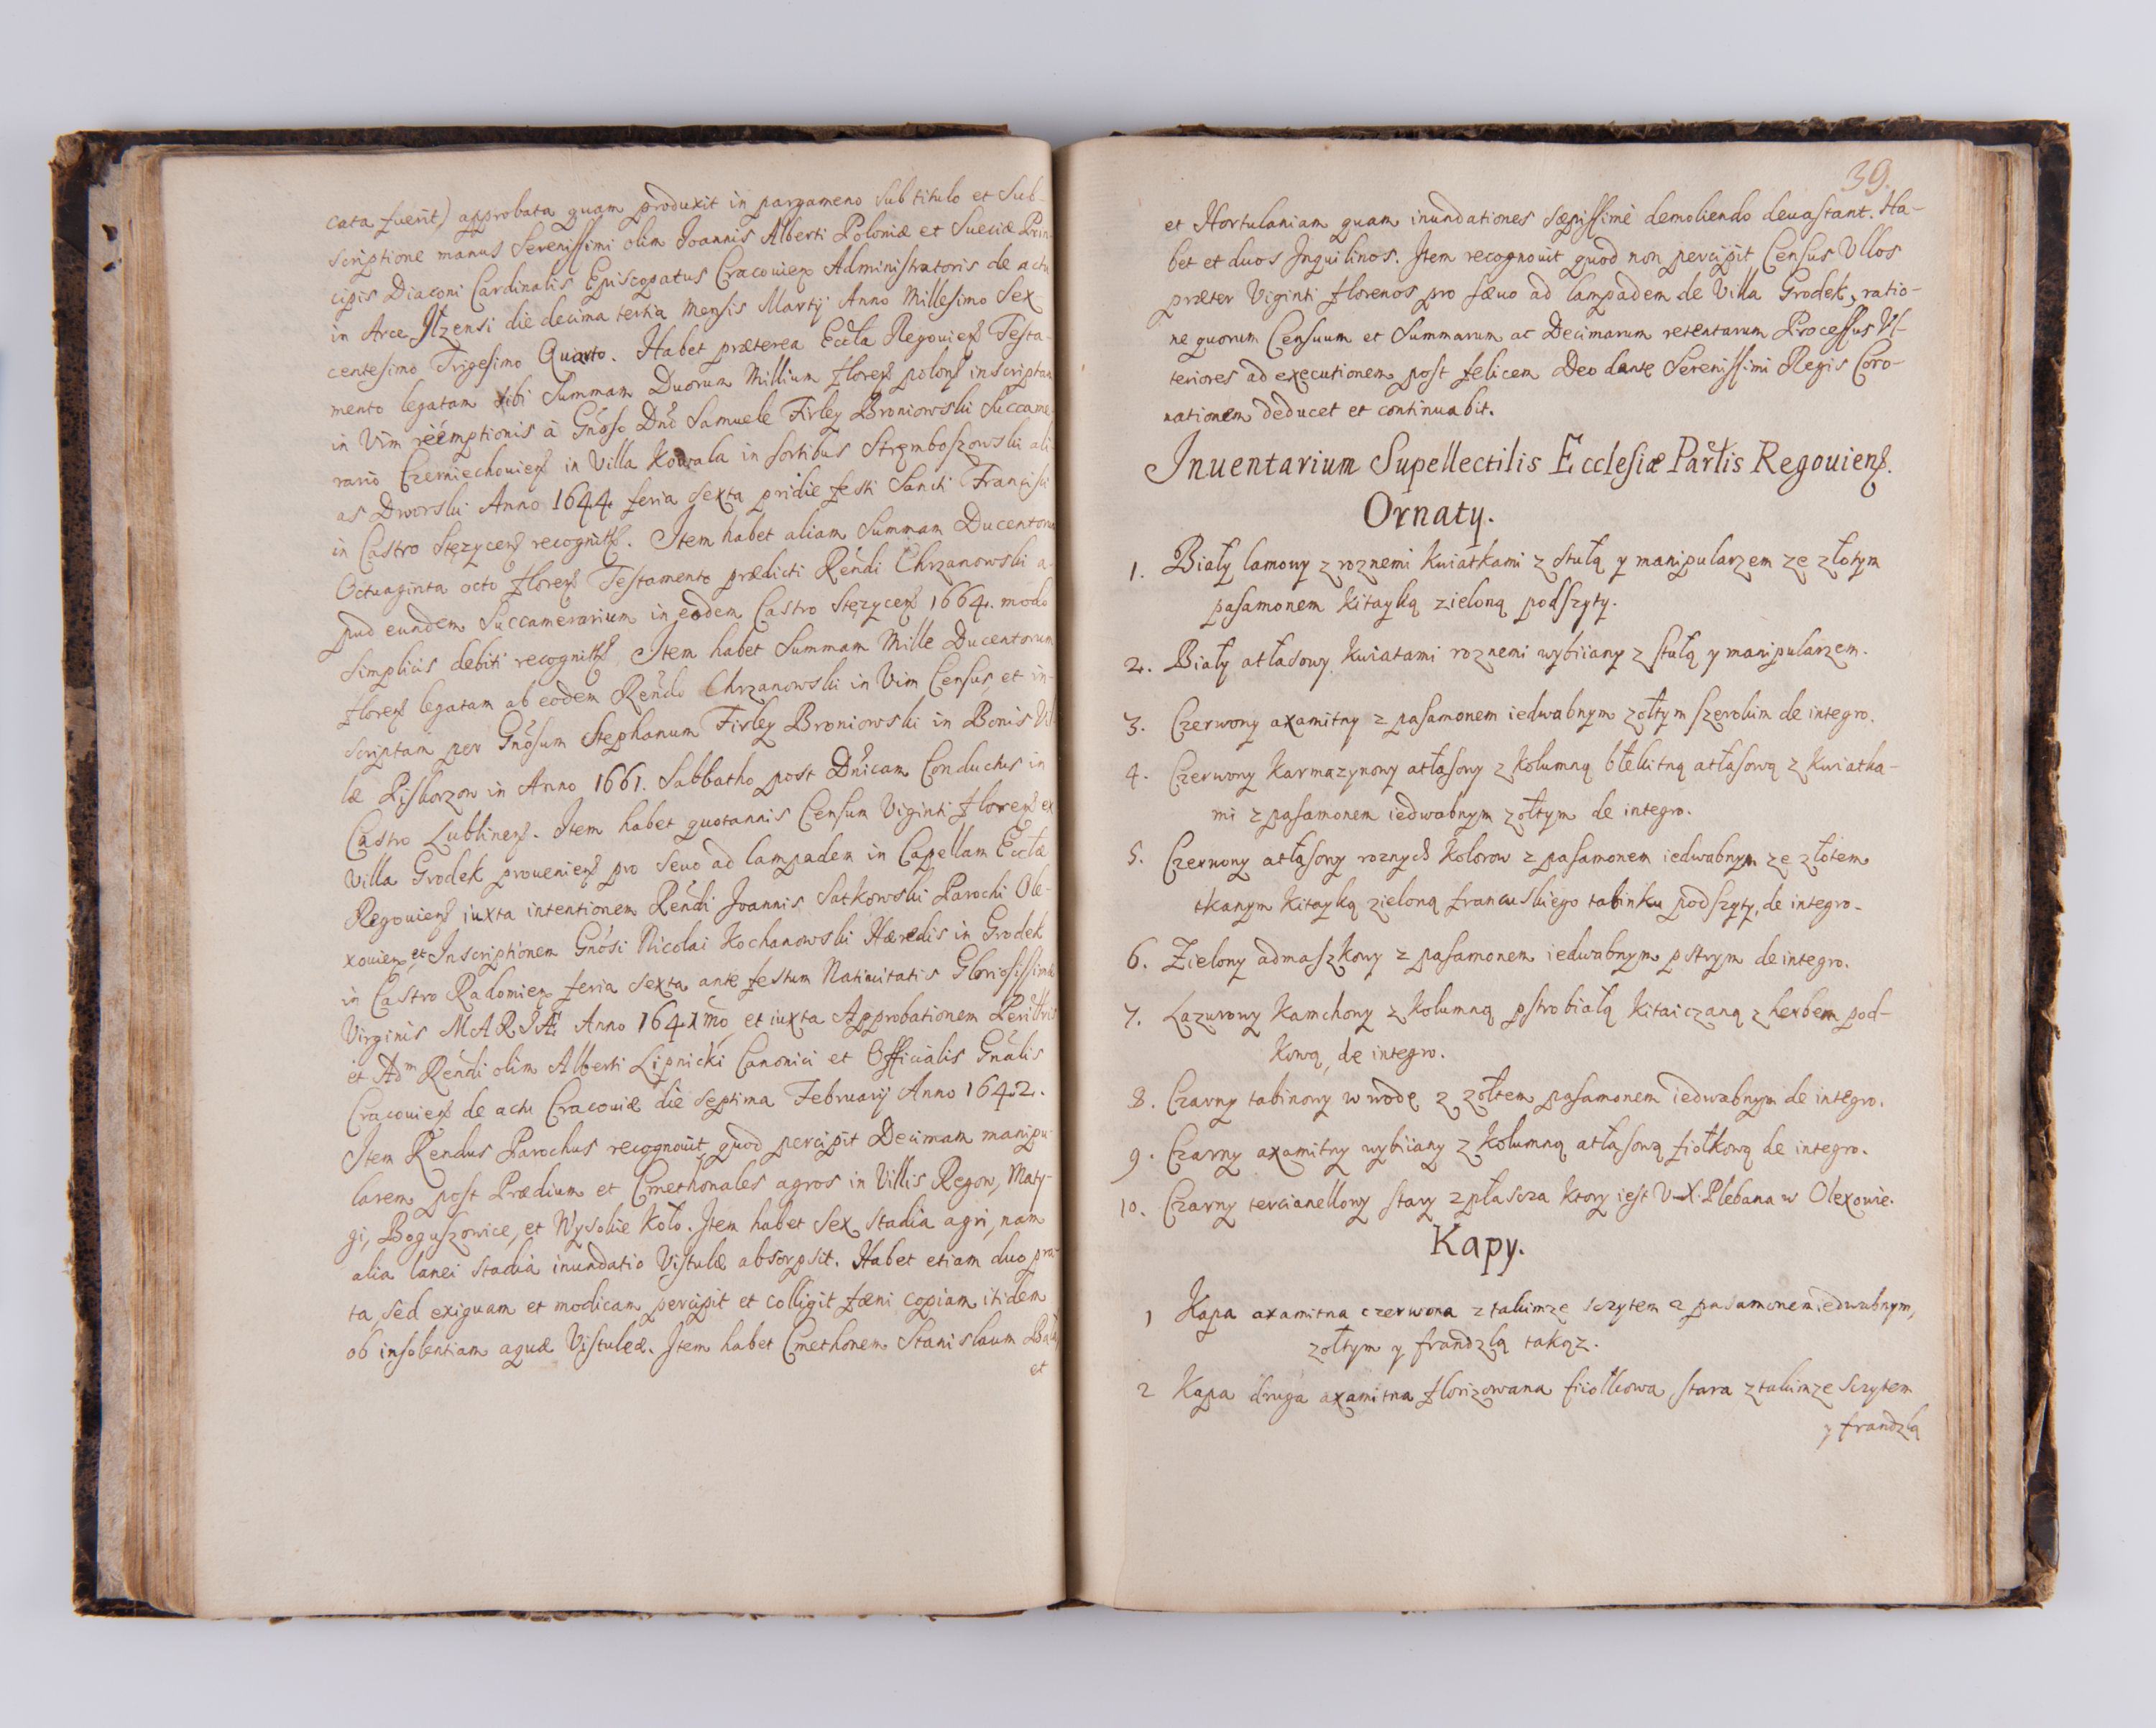 cata fuerit) approbata quam produxit in pargameno sub titulo et Sub-
scriptione manus Serenissimi olim Joannis Alberti Poloniæ et Sueciæ Prin-
cipis Diaconi Cardinalis Episcopatus Cracouien Administratoris de actu
in Arce Jlzensi die decima tertia Mensis Martij Anno Millesimo Sex-
centesimo Trigesimo Quarto. Habet præterea Eccla Regouien Testa-
mento legatam sibi Summam Duorum Millium floren polon inscriptam
in Vim reemptionis à Gnoso Dno Samuele Firley Broniowski Succame-
rario Czerniechouien in Villa Kowala in sortibus Stręmboszowski ali-
as Dworski Anno 1644 feria sexta pridie festi Sancti Francisci
in Castro Stęzycen recognit. Jtem habet aliam Summam Ducentorum
Octuaginta octo floren Testamento prædicti Rendi Chrzanowski a-
pud eundem Succamerarium in eodem Castro Stęzycen 1664. modo
simplicis debiti recognit. Jtem habet Summam Mille Ducentorum
floren legatam ab eodem Rendo Chrzanowski in Vim Census, et in-
scriptam per Gnosum Stephanum Firley Broniowski in Bonis Vil-
læ Piskorzow in Anno 1661. Sabbatho post Dnicam Conductus in
Castro Lublinen. Jtem habet quotannis Censum Viginti floren ex
Villa Grodek prouenien pro seuo ad lampadem in Capellam Ecclæ
Regouien iuxta intentionem Rendi Joannis Satkowski Parochi Ole-
xouien, et Inscriptionem Gnosi Nicolai Kochanowski Hæredis in Grodek
in Castro Radomien feria sexta ante festum Natiuitatis Gloriosissimæ
Virginis MARIÆ Anno 1641mo, et iuxta Approbationem Perillris
et Adm Rendi olim Alberti Lipnicki Canonici et Officialis Gnalis
Cracouien de actu Cracouiæ die septima Februarij Anno 1642.
Jtem Rendus Parochus recognouit quod percipit Decimam manipu-
larem post Prædium et Cmethonales agros in Villis Regow, Maty-
gi, Boguszowice, et Wysokie Koło. Jtem habet sex stadia agri, nam
alia lanei stadia inundatio Vistulæ absorpsit. Habet etiam duo pra-
ta, sed exiguam et modicam percipit et colligit fæni copiam itidem
ob insolentiam aquæ Vistuleæ. Jtem habet Cmethonem Stanislaum
et
39.
et Hortulaniam quam inundationes sæpissimè demoliendo deuastant. Ha-
bet et duos Jnquilinos. Jtem recognouit quod non percipit Census Vllos
præter Viginti florenos pro sæuo ad lampadem de Villa Grodek, ratio-
ne quorum Censuum et Summarum ac Decimarum retentarum Processus Vl-
teriores ad executionem post felicem Deo dante Serenissimi Regis Coro-
nationem deducet et continuabit.
Jnuentarium Supellectilis Ecclesiæ Parlis Regouien.
Ornaty.
1. Biały lamowy z roznemi kwiatkami z stułą y manipularzem ze złotym
pasamonem kitayką zieloną podszyty.
2. Biały atłasowy kwiatami roznemi wybiiany z stułą y manipularzem.
3. Czerwony axamitny z pasamonem iedwabnym zołtym szerokim de integro.
4. Czerwony karmazynowy atłasowy z kolumną błekitną atłasową z kwiatka-
mi z pasamonem iedwabnym zołtym de integro.
5. Czerwony atłasowy roznych kolorow z pasamonem iedwabnym ze złotem
tkanym kitayką zieloną francuskiego tabinku podszyty, de integro.
6. Zielony admaszkowy z pasamonem iedwabnym pstrym de integro.
7. Lazurowy kamchowy z kolumną pstrobiałą kitaiczaną z herbem pod-
kową, de integro.
8. Czarny tabinowy w wodę z zołtem pasamonem iedwabnym de integro.
9. Czarny axamitny wybiiany z kolumną atłasową fiołkową de integro.
10. Czarny tercianellowy stary z płascza ktory iest V X. Plebana w Olexowie.
Kapy.
1 Kapa axamitna czerwona z takimze sczytem z pasamonem iedwabnym,
zołtym y frandzlą takąz.
2 Kapa druga axamitna florizowana fiiołkowa stara z takimze sczytem
y frandzlą